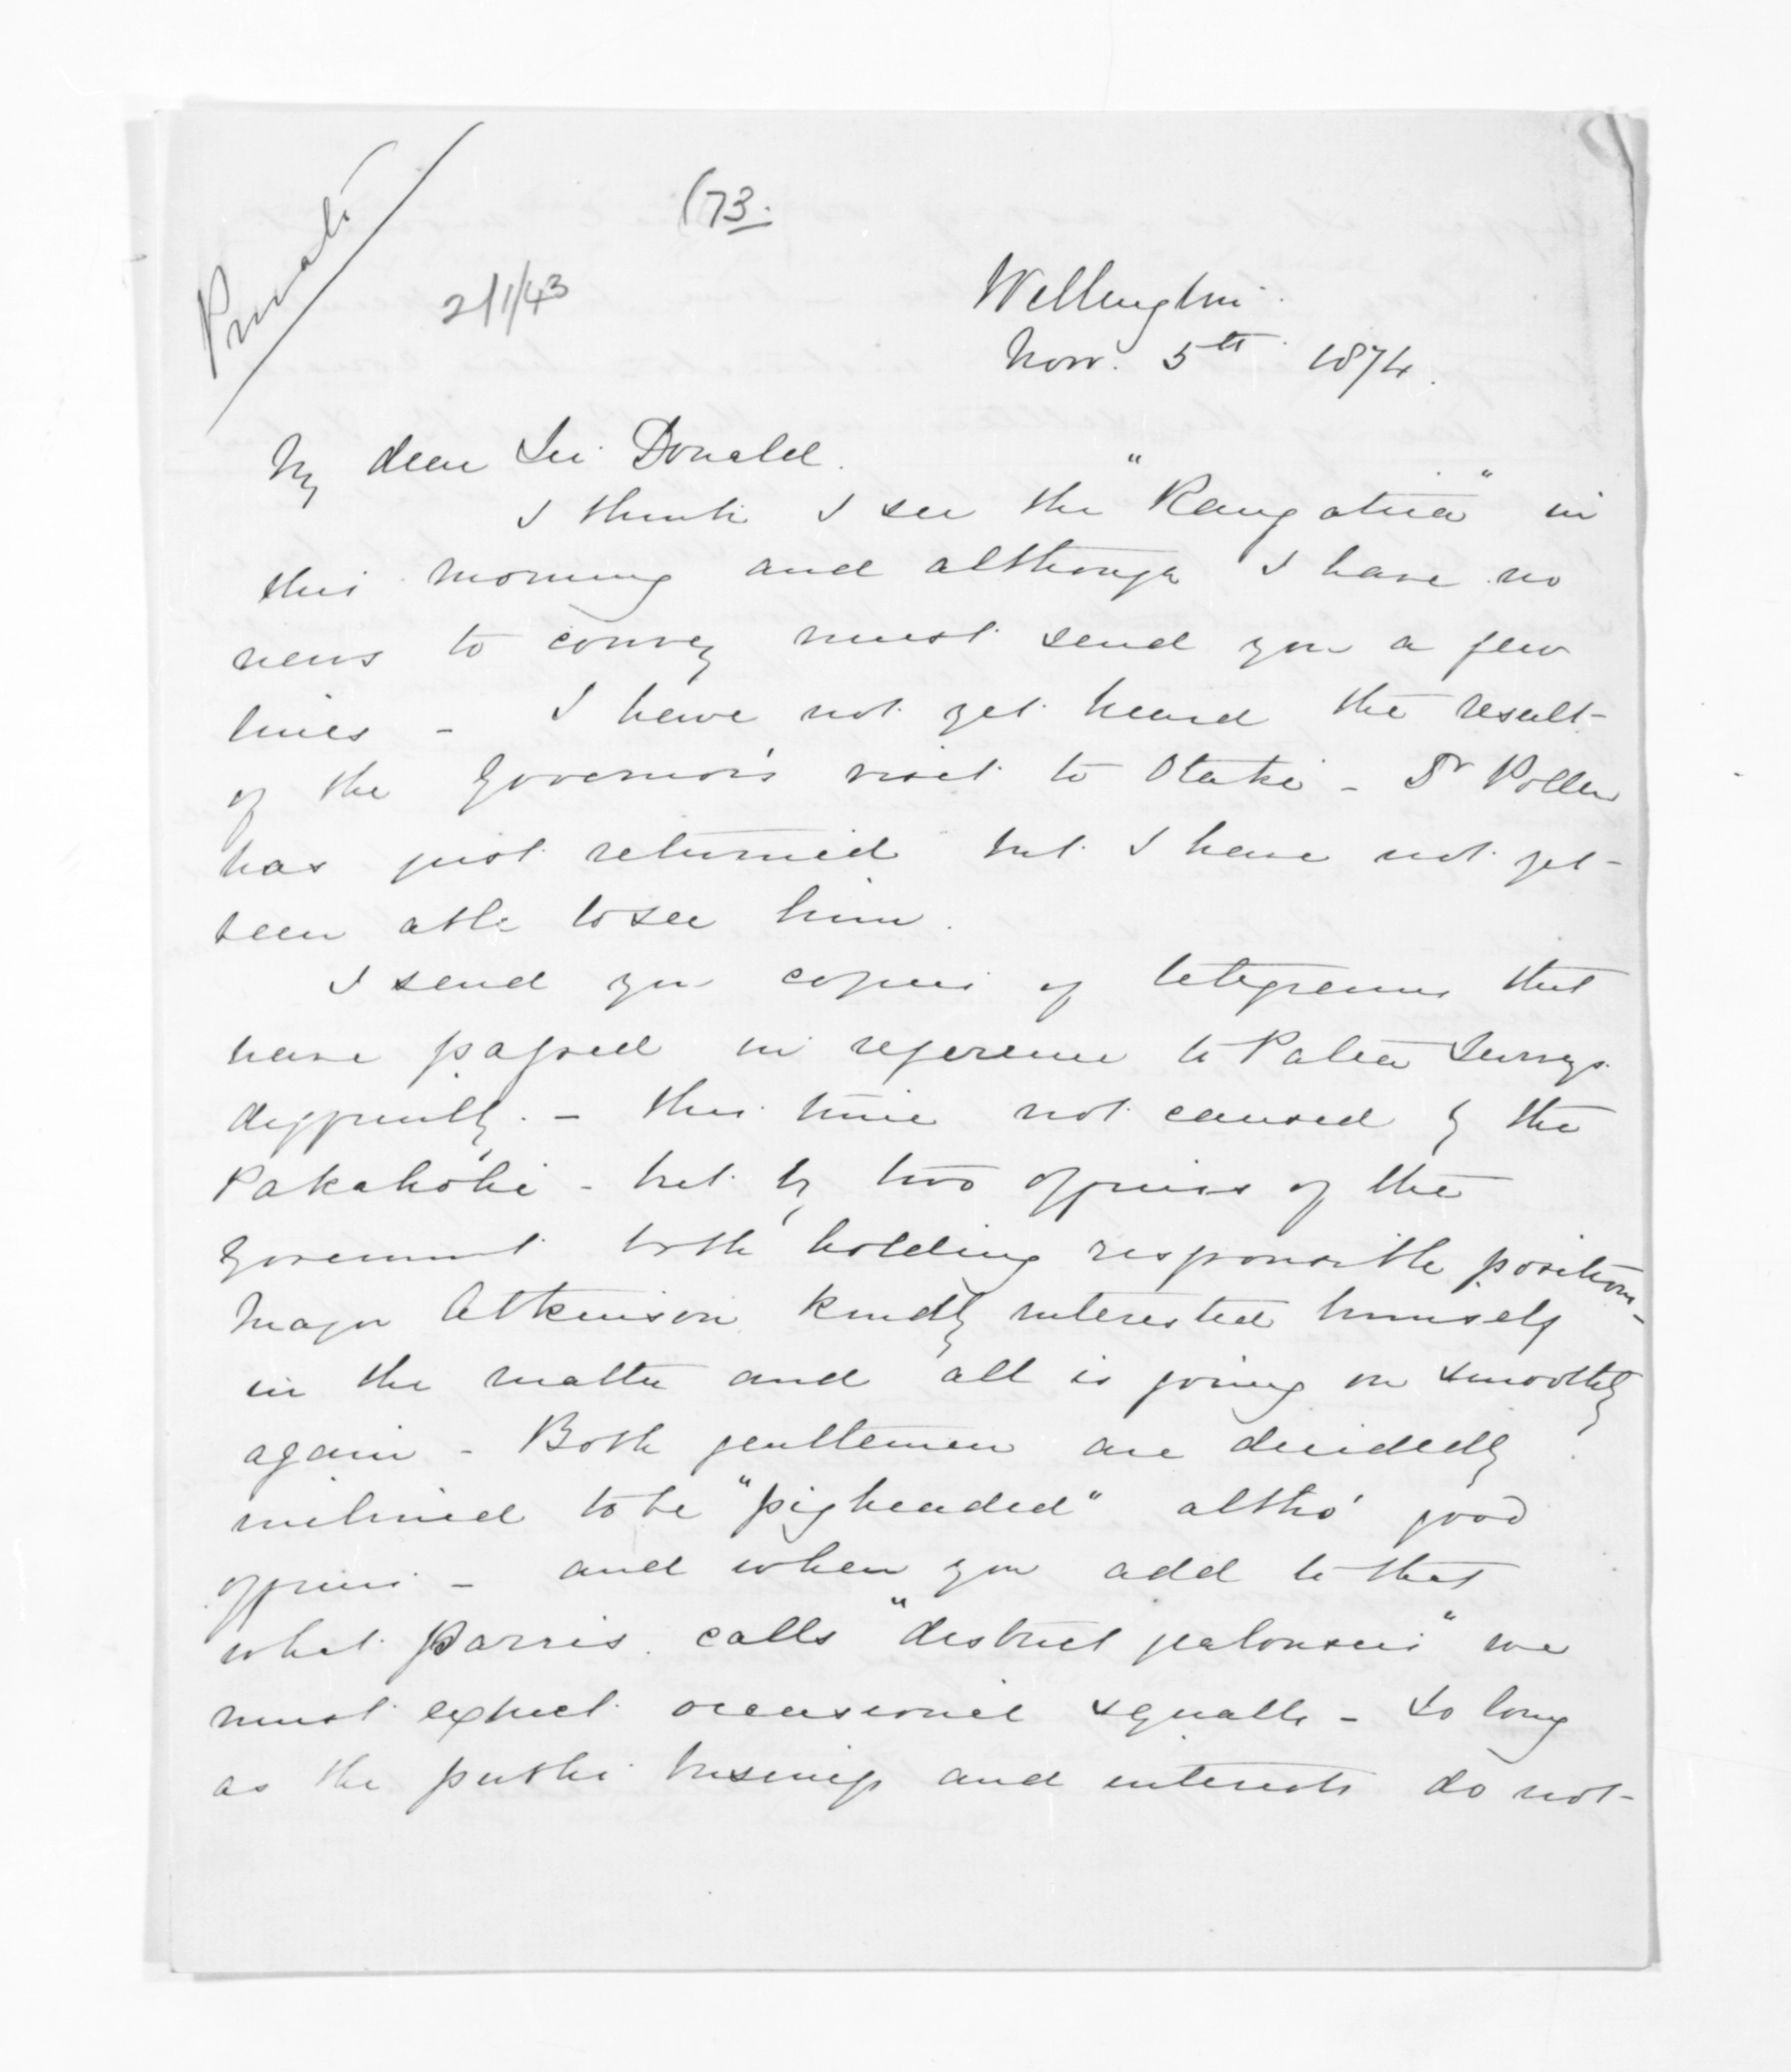 Private
(73.
2/1/43
Wellington.
Nov. 5th 1874.
My dear Sir Donald.
I think I see the "Rangatira" in
this morning and although I have no
news to convey must send you a few
lines - I have not yet heard the result
of the Governor's visit to Otaki - Dr Pollen
has just returned but I have not yet
been able to see him.
I send you copies of telegrams that
have passed in reference to Patea Surveys
difficulty. - this time not caused by the
Pakakohi - but by two officers of the
Government both holding responsible positions -
Major Atkinson kindly interested himself
in the matter and all is going on smoothly
again - Both gentlemen are decidedly
inclined to be "pigheaded" altho' good
officers - and when you add to that
what Parris calls "district jealousies" we
must expect occasional squalls - So long
as the public business and interests do not